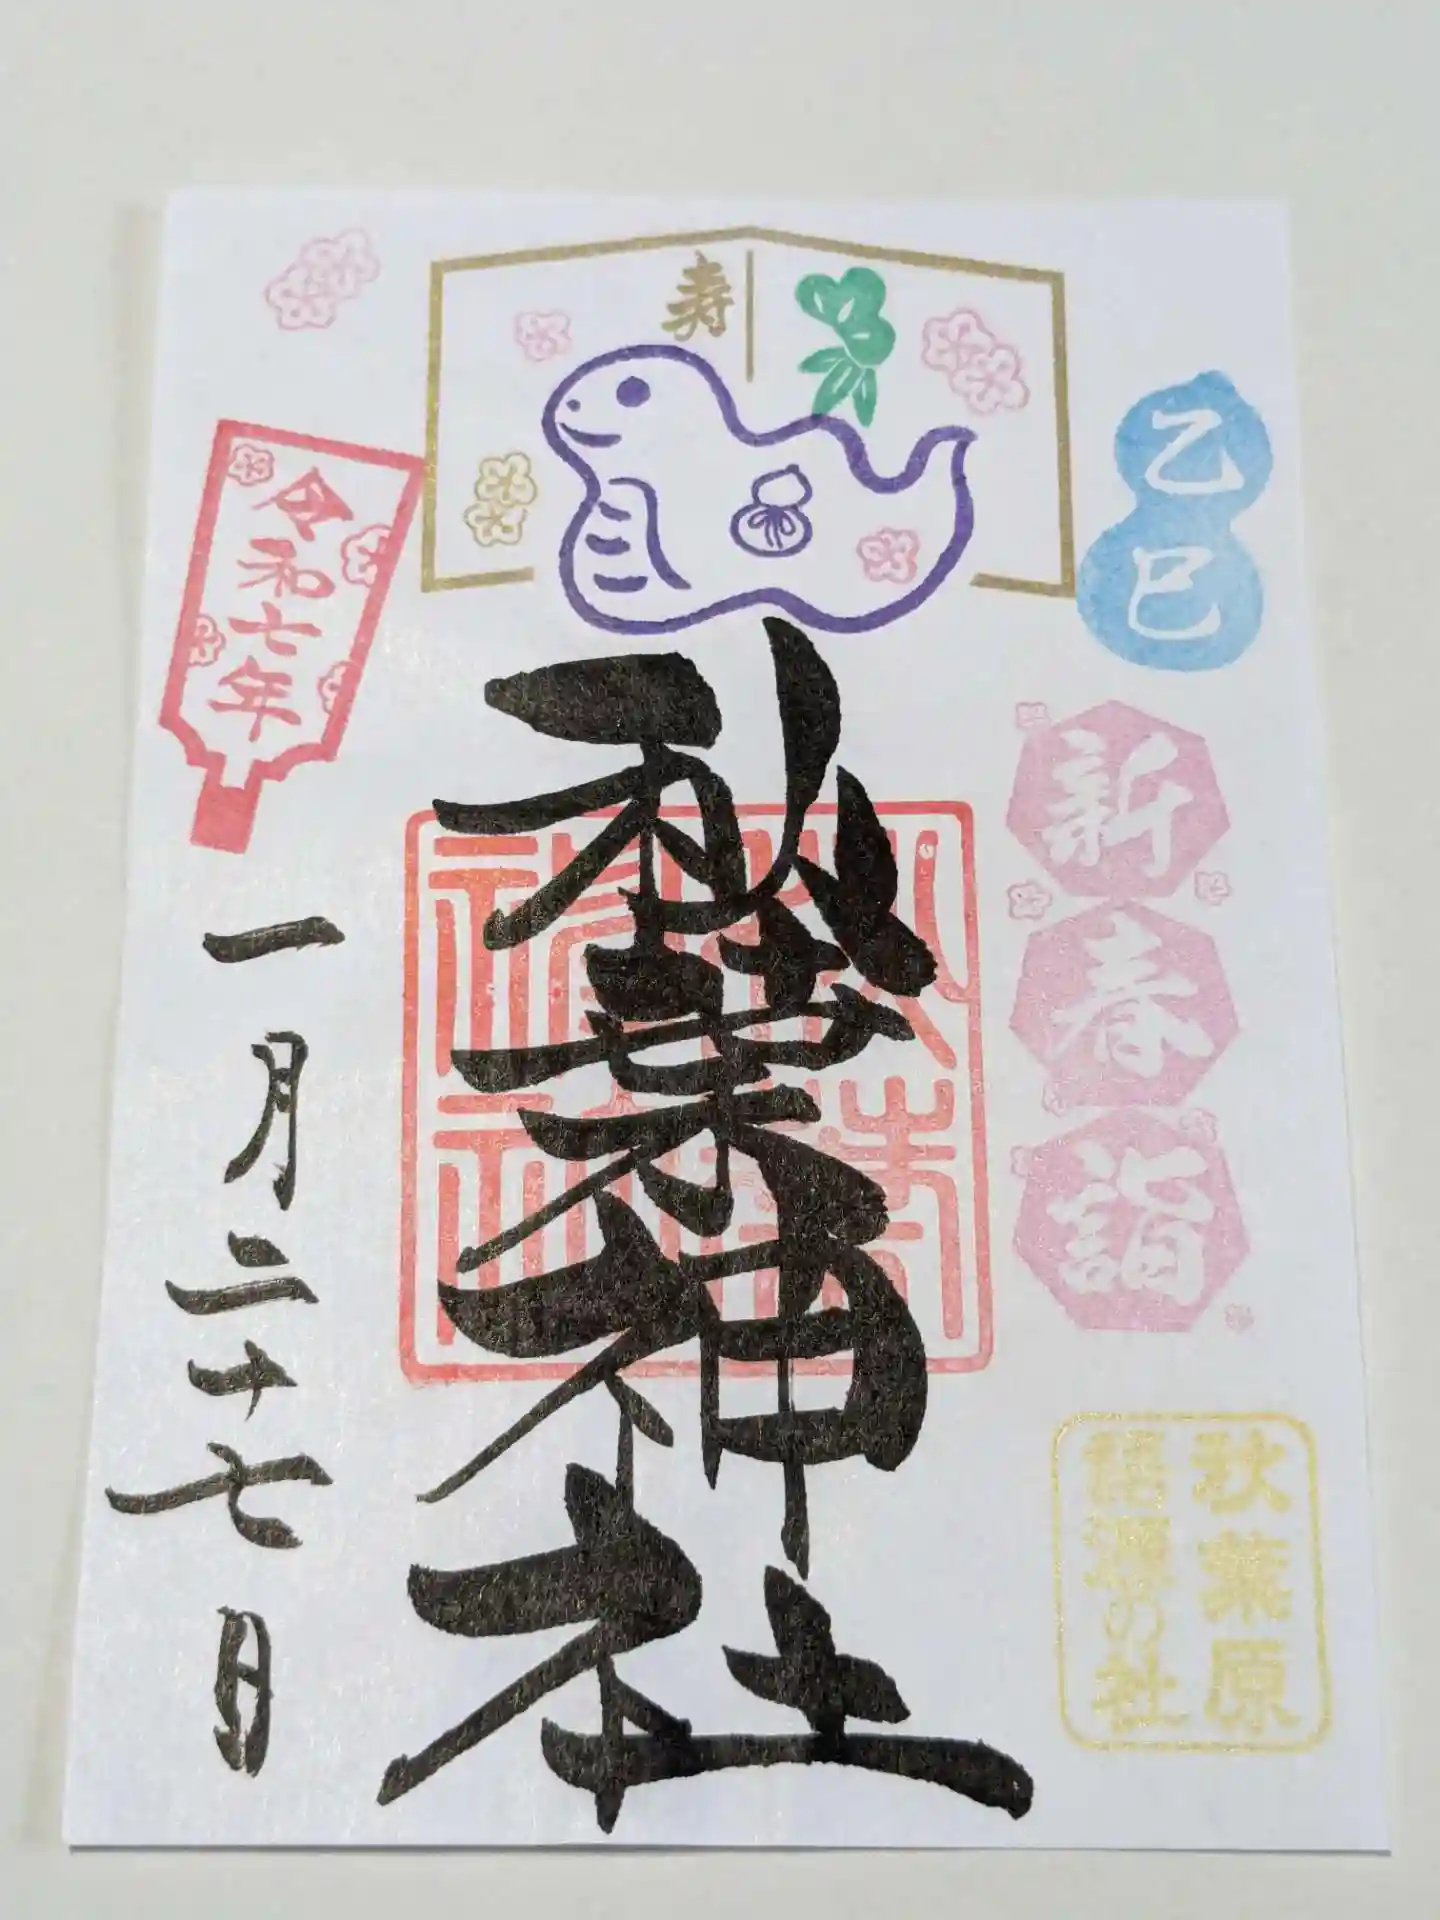 寿
乙巳
新春詣
秋葉原
福運の社
秋葉神社
令和七年
一月二十七日